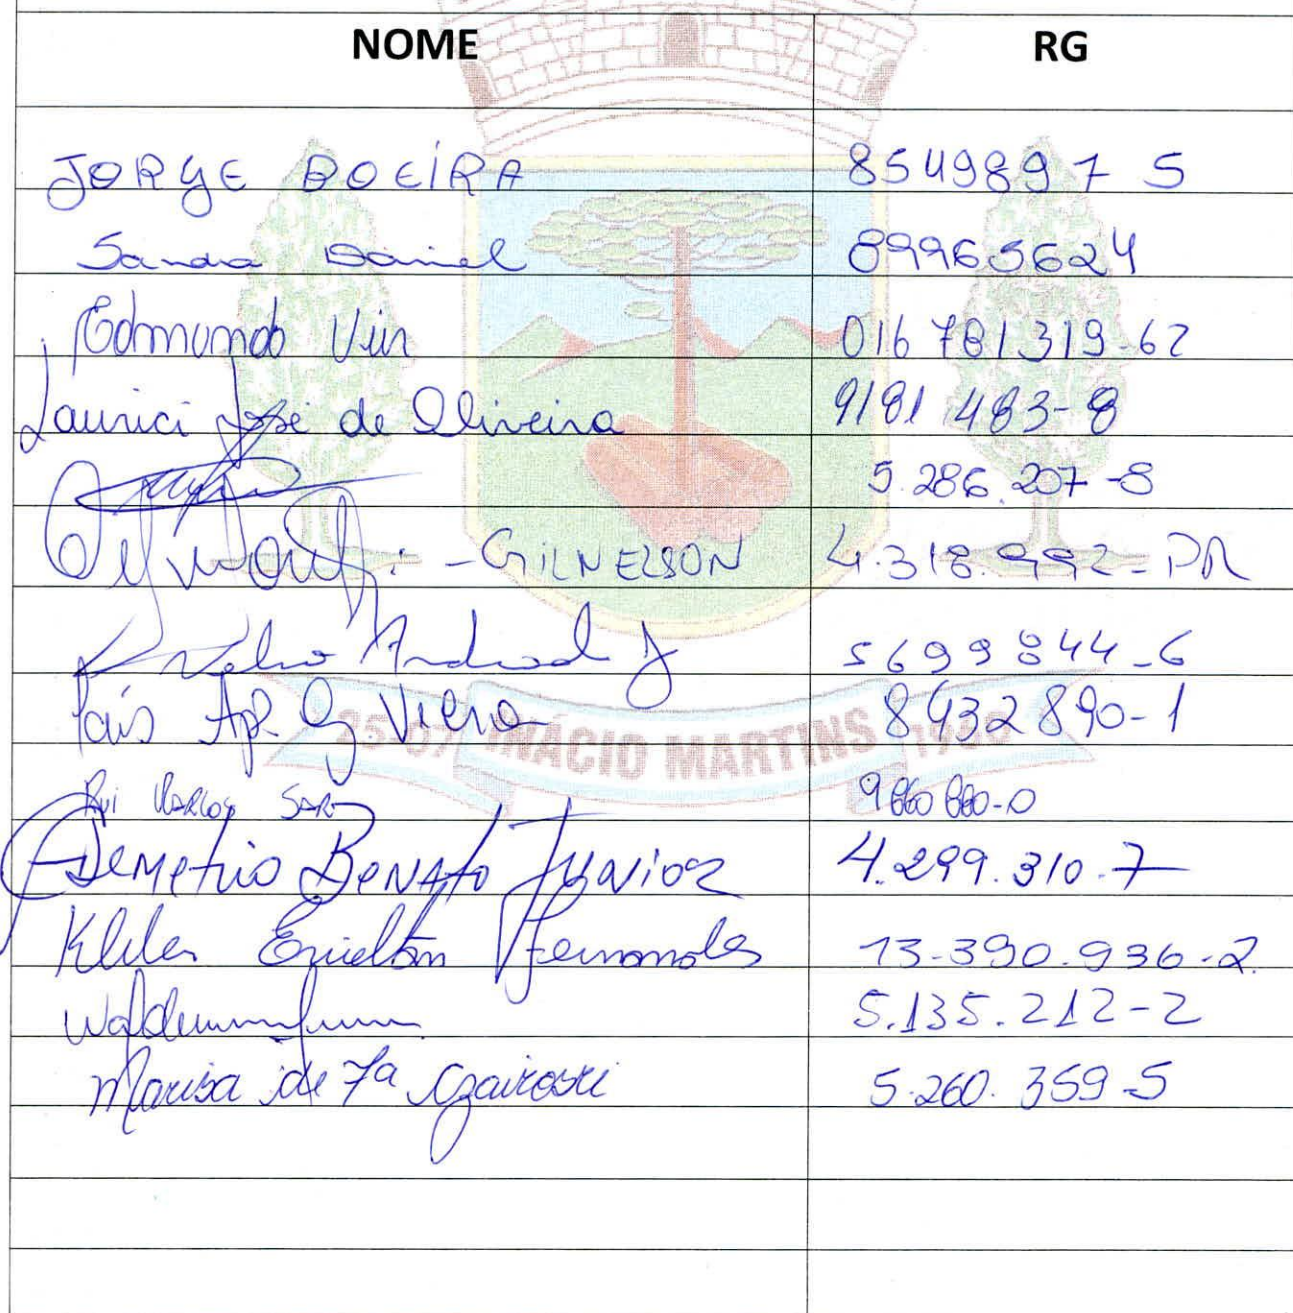 NOME RG
JORGE BOEIRA 8549897 5
Sandra Daniel 89965624
Edmundo Vier 016 781 319-62
Laurici José de Oliveira 9181 483-8
5.286.207-8
- GILNELSON 4.318.992-PR
Andrade J 5699844-6
Ap. Vieira 8432890-1
Rui Marcos
DEMETRIO BENATO JUNIOR 4.299.310-7
Kleber Fernandes 13-390.936-2
5.135.212-2
Marisa de Fª 5.260.359-5
25-07 INÁCIO MARTINS